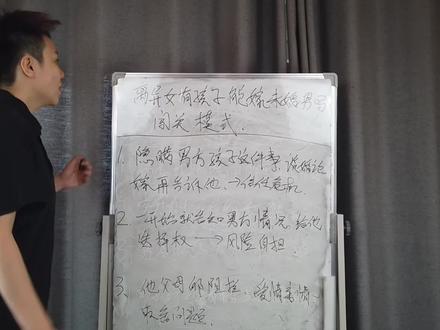 离异女有孩子能嫁未婚男吗
闯关模式.
1. 隐瞒男方孩子这件事,谈婚论
嫁再告诉他.→信任危机.
2. 一开始就告知男方情况,给他
选择权 → 风险自担.
3. 他父母那阻拦. 爱情亲情
取舍问题.